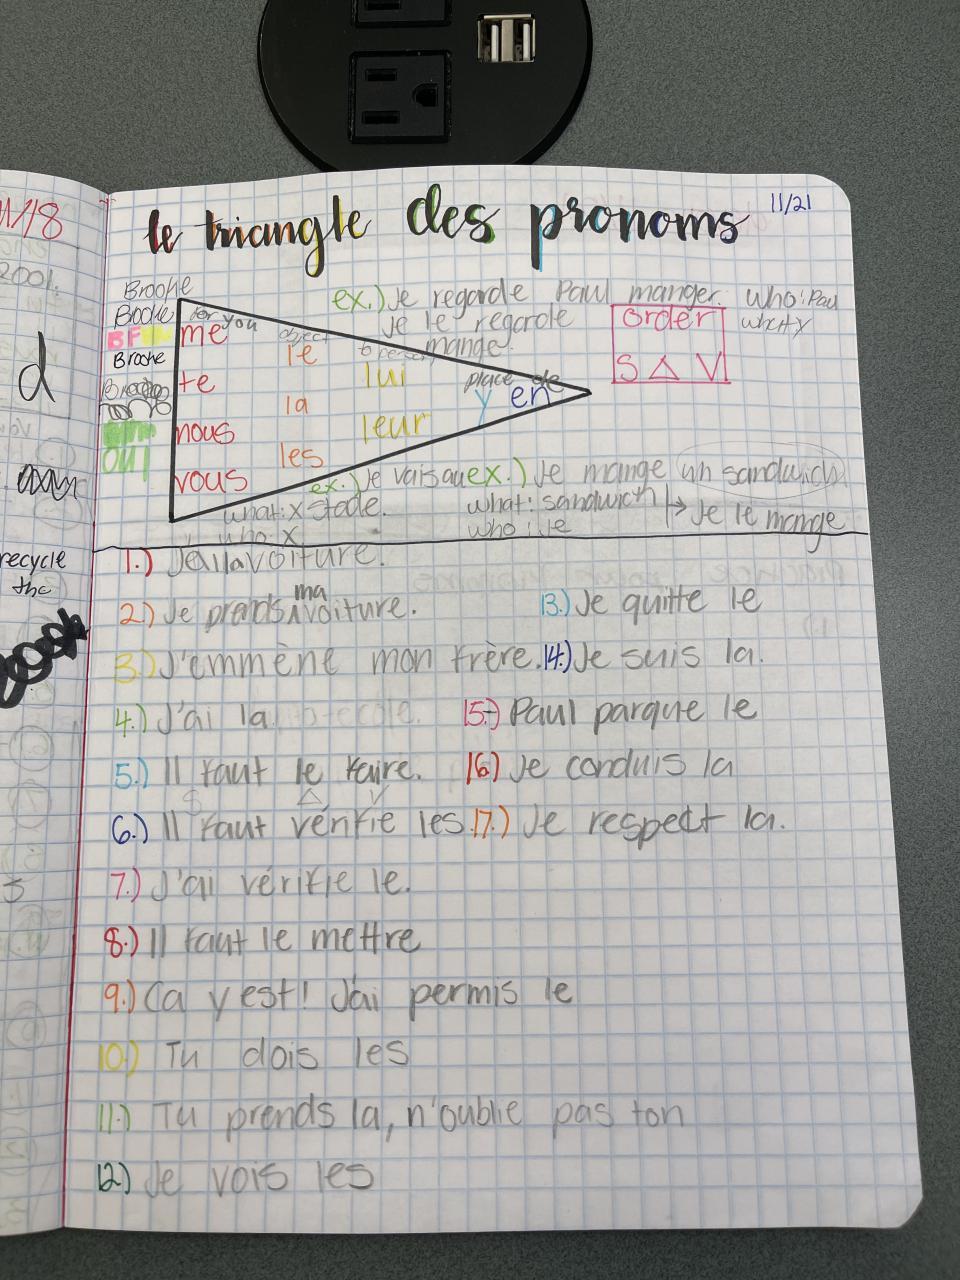 11/18
2001.
d
recycle
the
le triangle des pronoms
11/21
Brooke
Brooke
BF
Brooke
ex.) Je regarde Paul manger.
Je le regarde
mange.
who: Paul
what: y
order
S △ V
for you
me
te
nous
vous
object
le
la
les
to person
lui
leur
place
de
y
en
ex.) Je vais au
stade.
what: x
who: x
ex.) Je mange un sandwich
what: sandwich
who: Je
↳ Je le mange
1.) J'ai la voiture.
2.) Je prends ma voiture.
3.) J'emmène mon frère.
4.) J'ai la
5.) Il faut le faire.
S △ V
6.) Il faut vérifie les.
7.) J'ai vérifie le.
8.) Il faut le mettre
9.) Ca y est! J'ai permis le
10.) Tu dois les
11.) Tu prends la, n'oublie pas ton
12) Je vois les
13.) Je quitte le
14.) Je suis la.
15.) Paul parque le
16.) Je conduis la
17.) Je respect la.